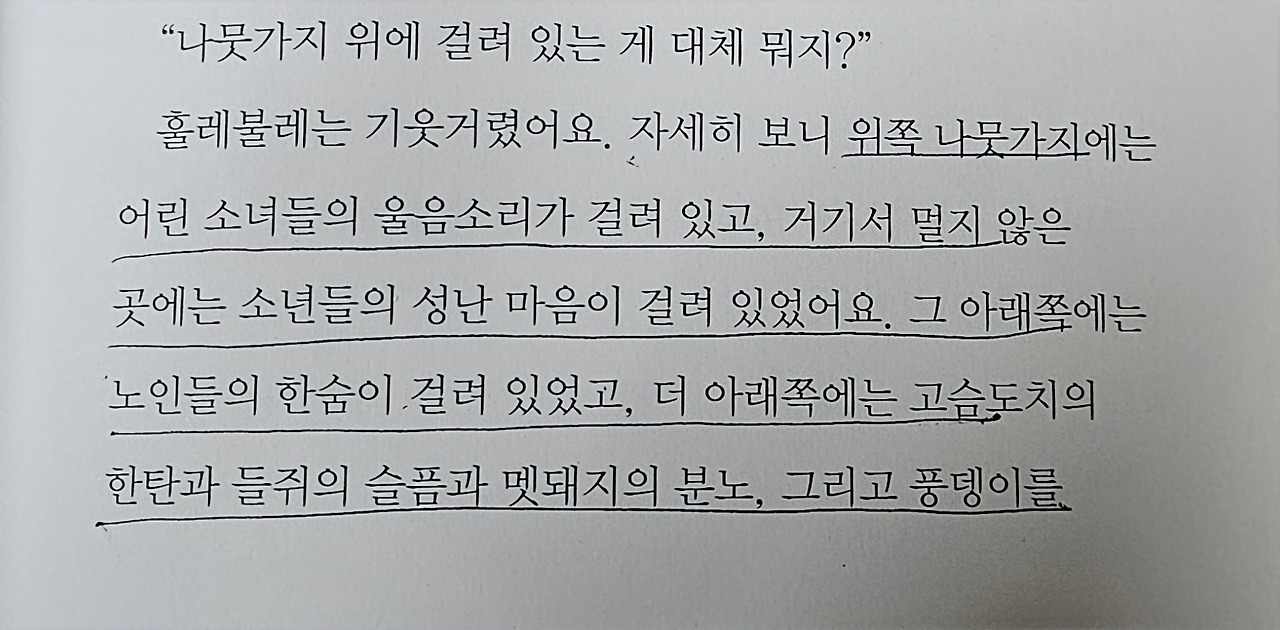 “나뭇가지 위에 걸려 있는 게 대체 뭐지?”
훌레불레는 기웃거렸어요. 자세히 보니 위쪽 나뭇가지에는
어린 소녀들의 울음소리가 걸려 있고, 거기서 멀지 않은
곳에는 소년들의 성난 마음이 걸려 있었어요. 그 아래쪽에는
노인들의 한숨이 걸려 있었고, 더 아래쪽에는 고슴도치의
한탄과 들쥐의 슬픔과 멧돼지의 분노, 그리고 풍뎅이를